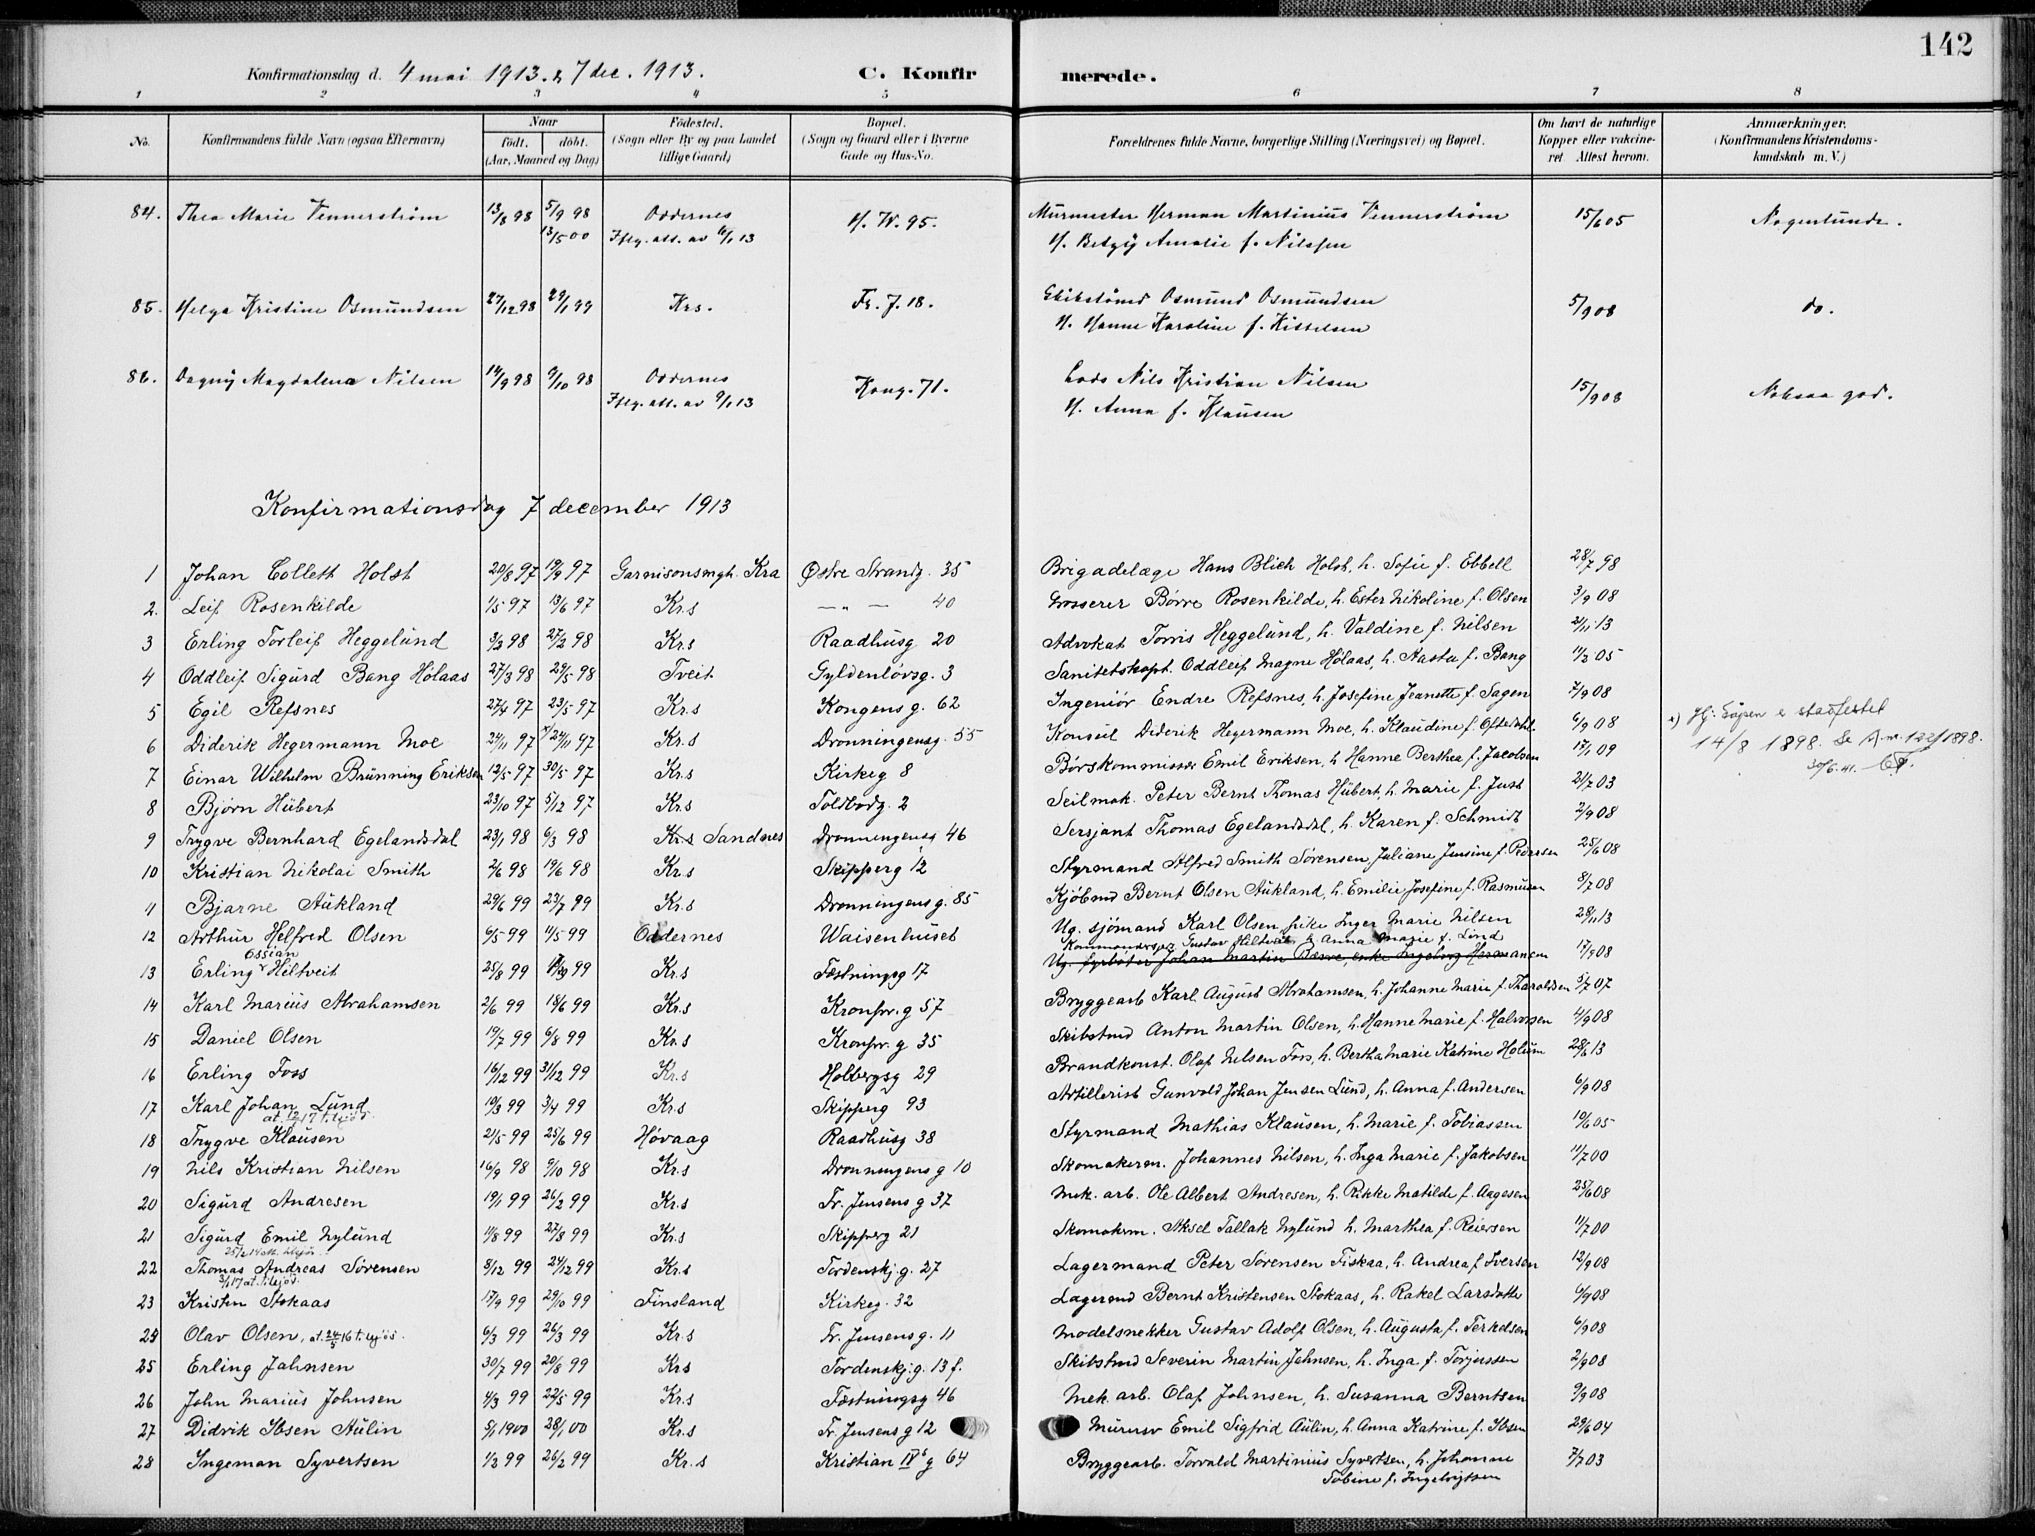 142
Konfirmationsdag d. 4 mai 1913. & 7 dec. 1913. C. Konfirmerede.
1 2 3 4 5 6 7 8
No. Konfirmandens fulde Navn (ogsaa Efternavn) Naar født. døbt. (Aar, Maaned og Dag) Fødested. (Sogn eller By og paa Landet tillige Gaard) Bopæl. (Sogn og Gaard eller i Byerne Gade og Hus-No. Forældrenes fulde Navne, borgerlige Stilling (Næringsvei) og Bopæl. Om havt de naturlige Kopper eller vakcineret. Attest herom. Anmærkninger. (Konfirmandens Kristendomskundskab m. V.)
84. Thea Marie Vennerstrøm 13/8 98 5/9 98 Oddernes H. W. 95. Murmester Herman Martinius Vennerstrøm 15/6 05 Nogenlunde.
13/5 00 Iflg. att. av 16/1 13 H. Betzy Amalie f. Nilsen
85. Helga Kristine Osmundsen 27/12 98 29/1 99 Krs. Fr. J. 18. Skibstømd Osmund Osmundsen 5/9 08 do.
H. Hanne Karoline f. Kittelsen
86. Dagny Magdalena Nilsen 14/9 98 9/10 98 Oddernes Kong. 71. Lods Nils Kristian Nilsen 15/9 08 Noksaa god.
Iflg. att. av 9/1 13 H. Anna f. Klausen
Konfirmationsdag 7 december 1913
1 Johan Collett Holst 20/8 97 19/9 97 Garnisonsmgh. Kra Østre Strandg. 35 Brigadelæge Hans Blich Holst, h. Sofie f. Ebbell 28/7 98
2. Leif Rosenkilde 1/5 97 13/6 97 Kr.s — „ — 40 Grosserer Børre Rosenkilde, h. Ester Nikoline f. Olsen 3/9 08
3 Erling Torleif Heggelund 3/2 98 27/2 98 Kr.s Raadhusg 20 Advokat Torris Heggelund, h. Valdine f. Nilsen 21/11 13
4 Oddleif Sigurd Bang Hølaas 27/3 98 29/5 98 Tveit Gyldenløvsg. 3 Sanitetskapt. Oddleif Magne Hølaas, h. Aasta f. Bang 11/3 05
5 Egil Refsnes 27/4 97 23/5 97 Kr.s Kongens g. 62 Ingeniör Endre Refsnes, h. Josefine Jeanette f. Sagen 7/9 08
6 Diderik Hegermann Moe 24/11 97 24/11 97 Kr.s Dronningensg. 55 Konsul Diderik Hegermann Moe, h. Klaudine f. Oftedahl 6/9 08 x) Hj: Dåpen e stadfestet
14/8 1898. Se A nr. 122/1898.
30/6. 41.
7 Einar Wilhelm Brünning Eriksen 12/5 97 30/5 97 Kr.s Kirkeg 8 Børskommissær Emil Eriksen, h Hanne Berthea f. Jacobsen 17/1 09
8 Bjørn Hübert 23/10 97 5/12 97 Kr.s Toldbodg. 2 Seilmak. Peter Bernt Thomas Hübert, h. Marie f. Just 21/7 03
9 Trygve Bernhard Egelandsdal 23/1 98 6/3 98 Kr.s Sandnes Dronningensg 46 Sersjant Thomas Egelandsdal, h. Karen f. Schmidt 2/9 08
10 Kristian Nikolai Smith 2/6 98 19/6 98 Kr.s Skipperg 12 Styrmand Alfred Smith Sörensen, Juliane Jensine f. Pedersen 25/6 08
11 Bjarne Aukland 29/6 99 23/7 99 Kr.s Dronningens g. 85 Kjöbmd Bernt Olsen Aukland, h. Emilie Josefine f. Rasmusen 8/7 08
12 Arthur Helfred Olsen 6/5 99 11/5 99 Oddernes Waisenhuset Ug. sjömand Karl Olsen, pike Inger Marie Nilsen 28/11 13
Ossian Gustav Hiltveit h Anna Marie f. Lind
13 Erling Hiltveit 25/8 99 99 Kr.s Fæstningsg 17 Ug. fyrbøter Johan Martin enke Ingeborg Hermansen 17/9 08
14 Karl Marius Abrahamsen 2/6 99 18/6 99 Kr.s Kronpr. g 57 Bryggearb Karl August Abrahamsen, h. Johanne Marie f. Tharaldsen 5/7 07
15 Daniel Olsen 19/7 99 6/8 99 Kr.s Kronpr. g 35 Skibstmd Anton Martin Olsen, h. Hanne Marie f. Halvorsen 4/9 08
16 Erling Foss 16/12 99 31/12 99 Kr.s Holbergsg 29 Brandkonst. Olaf Nilsen Foss, h. Bertha Marie Katrine Holum 28/6 13
17 Karl Johan Lund 10/3 99 3/4 99 Kr.s Skipperg 93 Artillerist Gunvald Johan Jensen Lund, h. Anna f. Andersen 6/9 08
18 Trygve Klausen 21/5 99 25/6 99 Høvaag Raadhusg 38 Styrmand Mathias Klausen, h. Marie f. Tobiassen 10/6 05
19 Nils Kristian Nilsen 16/9 98 9/10 98 Kr.s Dronningens g 10 Skomakerm. Johannes Nilsen, h. Inga Marie f. Jakobsen 11/7 00
20 Sigurd Andresen 19/1 99 26/2 99 Kr.s Fr. Jensens g 37 Mek. arb. Ole Albert Andresen, h. Rikke Matilde f. Aagesen 25/6 08
21 Sigurd Emil Nylund 11/8 99 27/8 99 Kr.s Skipperg 21 Skomakerm. Aksel Tallak Nylund h. Marthea f. Reiersen 11/7 00
22 Thomas Andreas Sörensen 8/12 99 24/12 99 Kr.s Tordenskj. g. 27 Lagermand Peter Sörensen Fiskaa, h. Andrea f Iversen 12/9 08
23 Kristen Stokaas 17/9 99 29/10 99 Finsland Kirkeg. 32 Lagermd Bernt Kristensen Stokaas, h. Rakel Larsdatter 6/9 08
24 Olav Olsen, 6/3 99 26/3 99 Kr.s Fr. Jensens g. 11 Modelsnekker Gustav Adolf Olsen, h. Augusta f. Terkelsen 6/9 08
25 Erling Jahnsen 30/7 99 20/8 99 Krs Tordenskj. g. 13 f. Skibstmd Severin Martin Jahnsen, h. Inga f. Torjussen 2/9 08
26 John Marius Johnsen 4/3 99 22/5 99 Kr.s Fæstningsg 46 Mek. arb. Olaf Johnsen, h. Susanna Berntsen 9/9 08
27 Didrik Ibsen Aulin 5/1 1900 28/1 00 Kr.s Fr. Jensens g 12 Murersv Emil Sigfrid Aulin, h. Anna Katrine f. Ibsen 29/6 04
28 Ingeman Syvertsen 1/2 99 26/2 99 Kr.s Kristian IVs g 64 Bryggearb. Torvald Martinius Syvertsen, h. Johanne 7/7 03
Tobine f. Ingebrigtsen